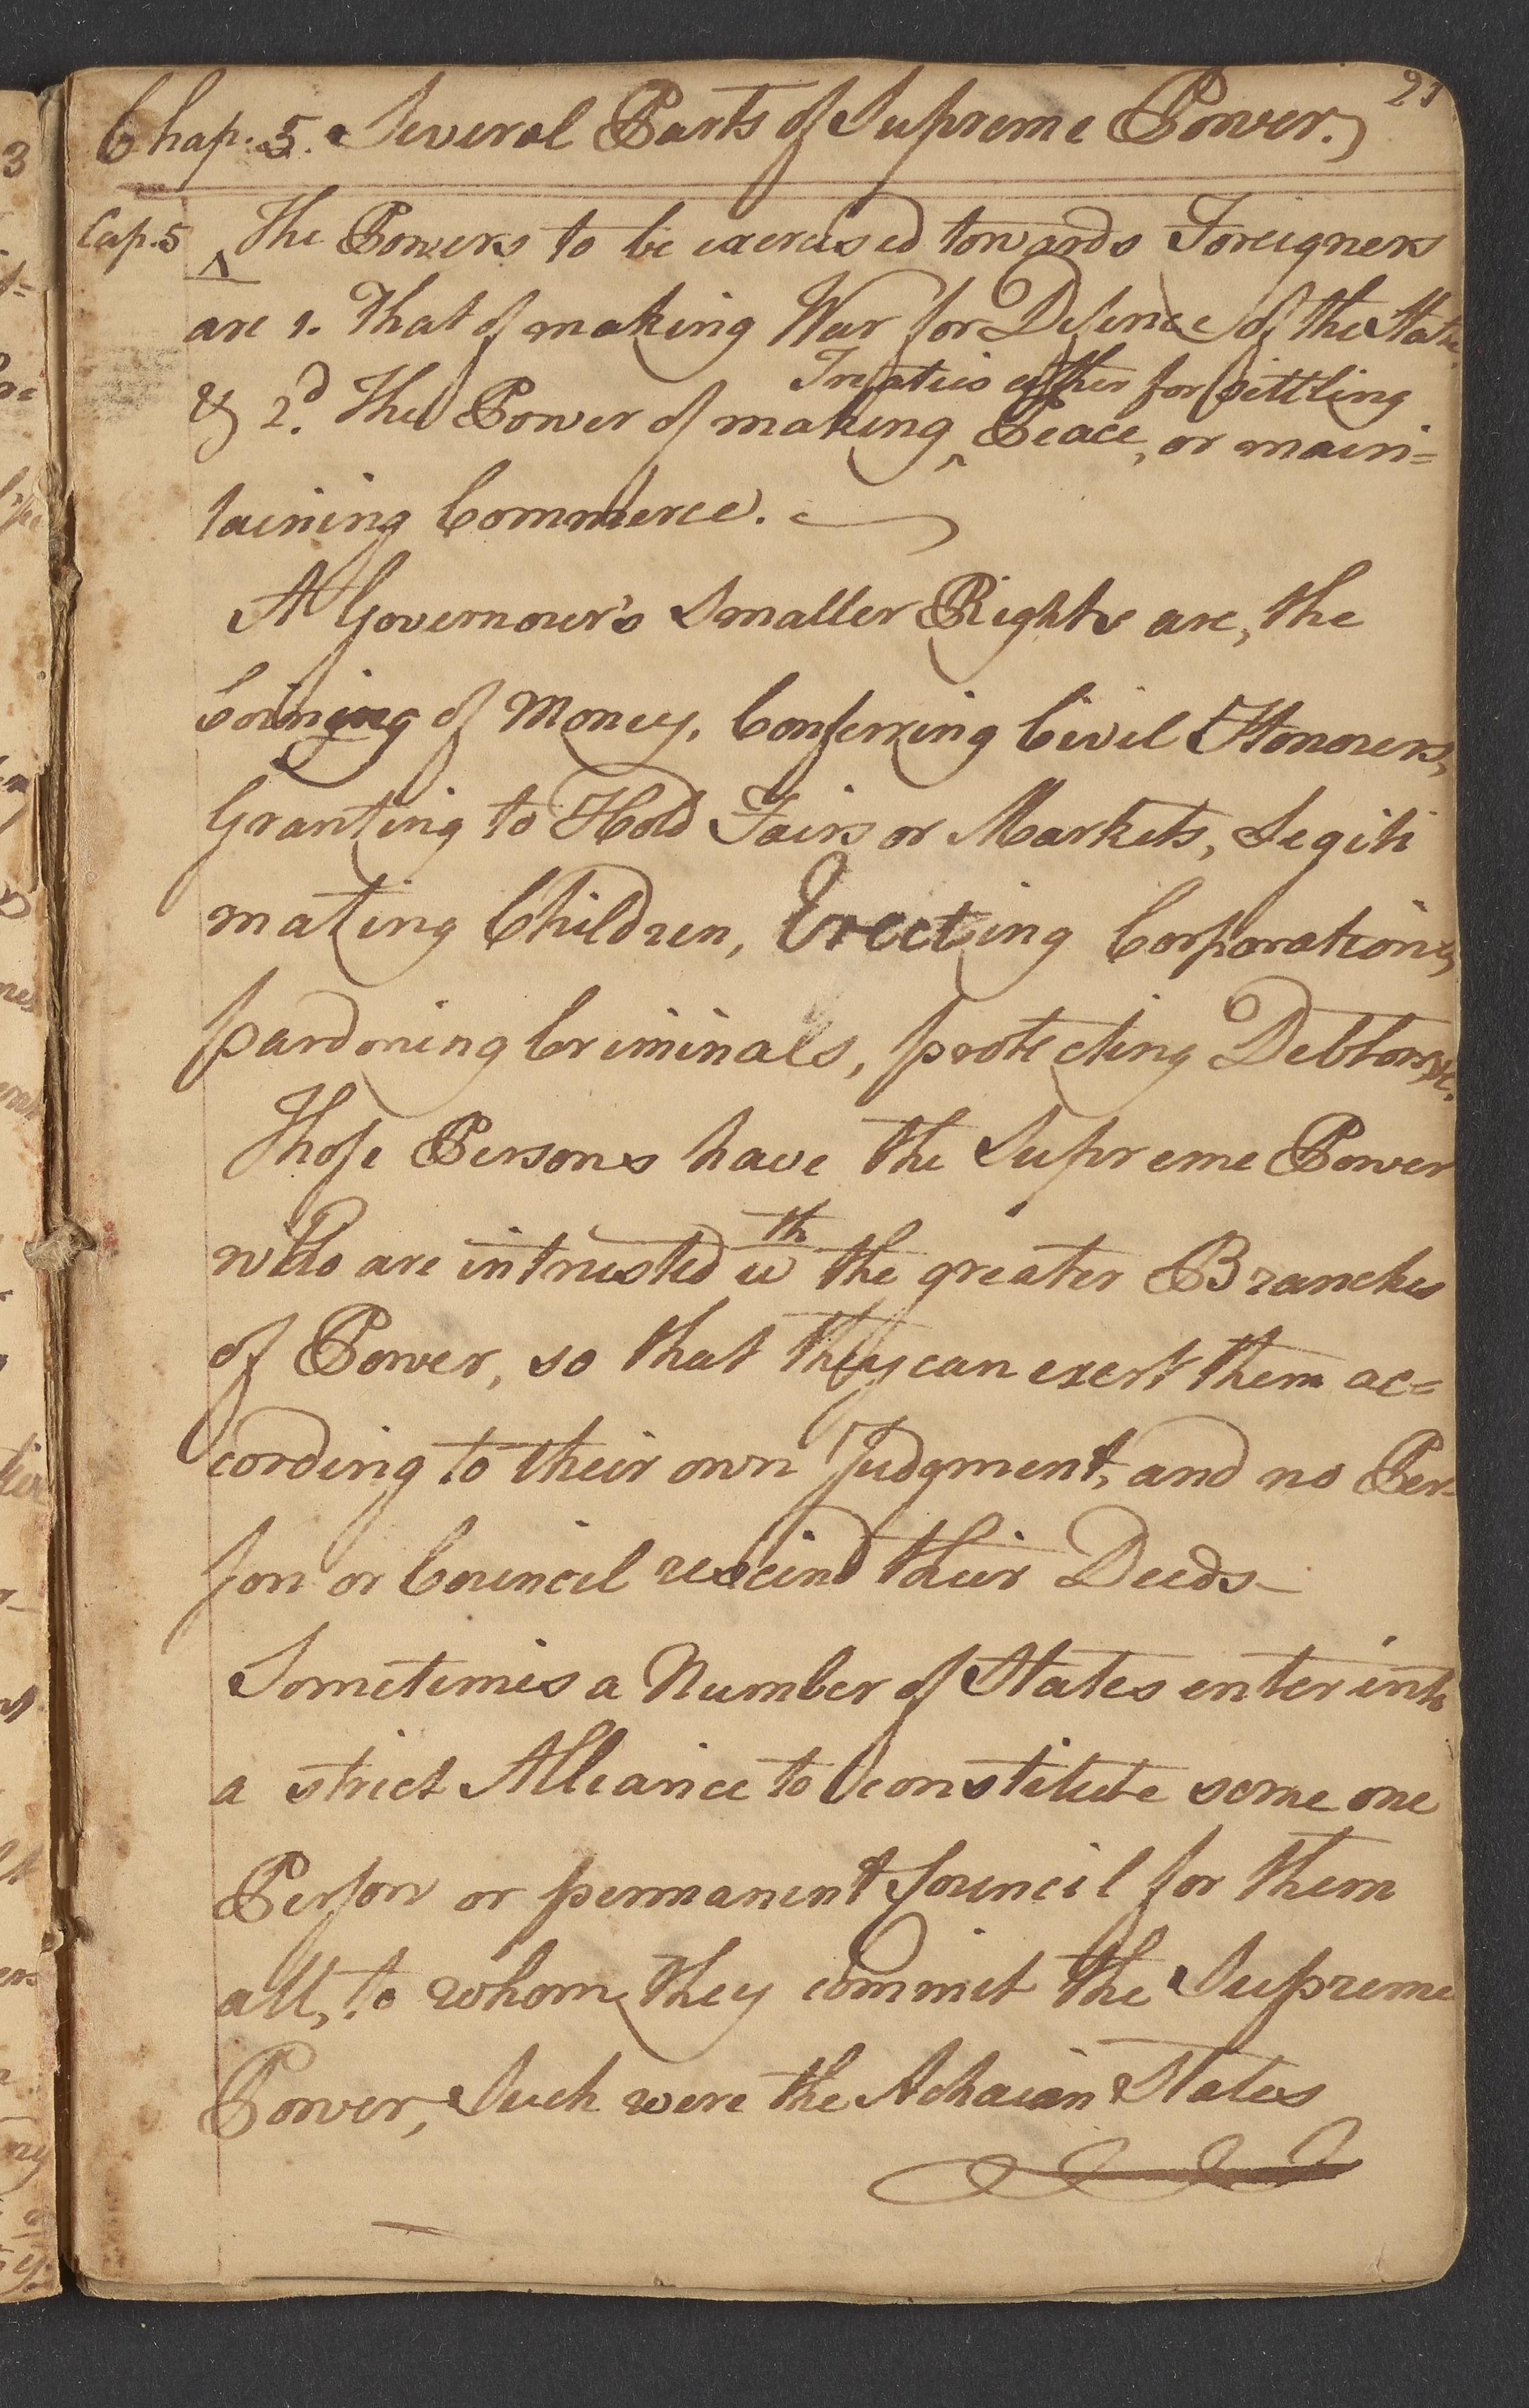 Chap. 5. Several Parts of Supreme Power.
Cap. 5 The Powers to be exercised towards Foreigners
are 1. That of making War for Defence of the State
& 2.d The Power of making ^ Peace, or main=
Treaties either for settling
taining Commerce.
A Governour's Smaller Rights are, the
Coining of Money, Conferring Civil Honours,
Granting to Hold Fairs or Markets, Legiti
mating Children, Erecting Corporations,
pardoning Criminals, protecting Debtors &c.
Those Persons have the Supreme Power
who are intrusted wth the greater Branches
of Power, so that they can exert them ac=
cording to their own Judgment, and no Per-
son or Council rescind their Deeds
Sometimes a Number of States enter into
a strict Alliance to constitute some one
Person or permanent Council for them
all, to whom they commit the Supreme
Power, Such were the Achaian States